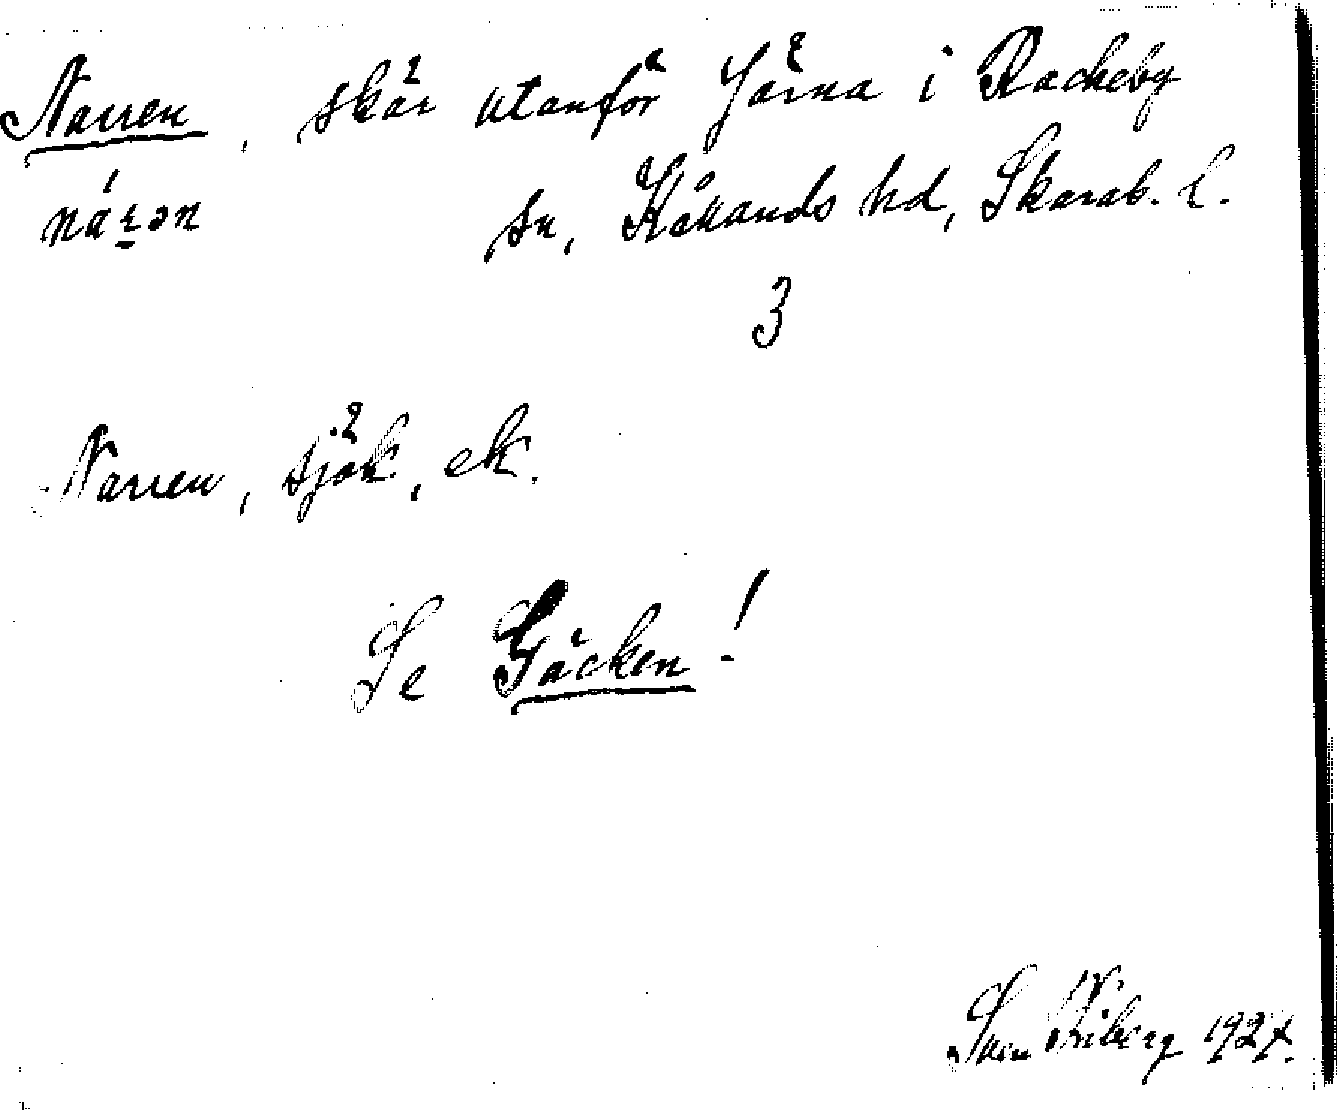 Narren, skär utanför Järna i Rackeby
náṟən sn, Kållands hd, Skarab. l.
3
Narren, sjök, ek.
Se Gäcken!
Sven Friberg 1927.